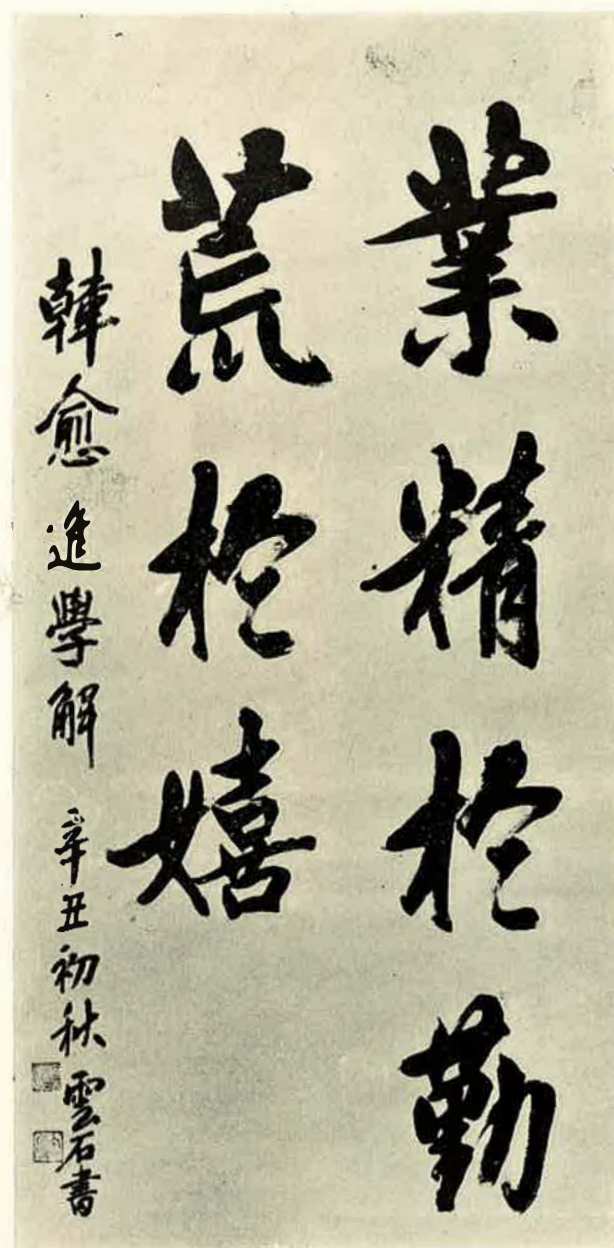 業精於勤
荒於嬉
韓愈進學解 辛丑初秋 雲石書